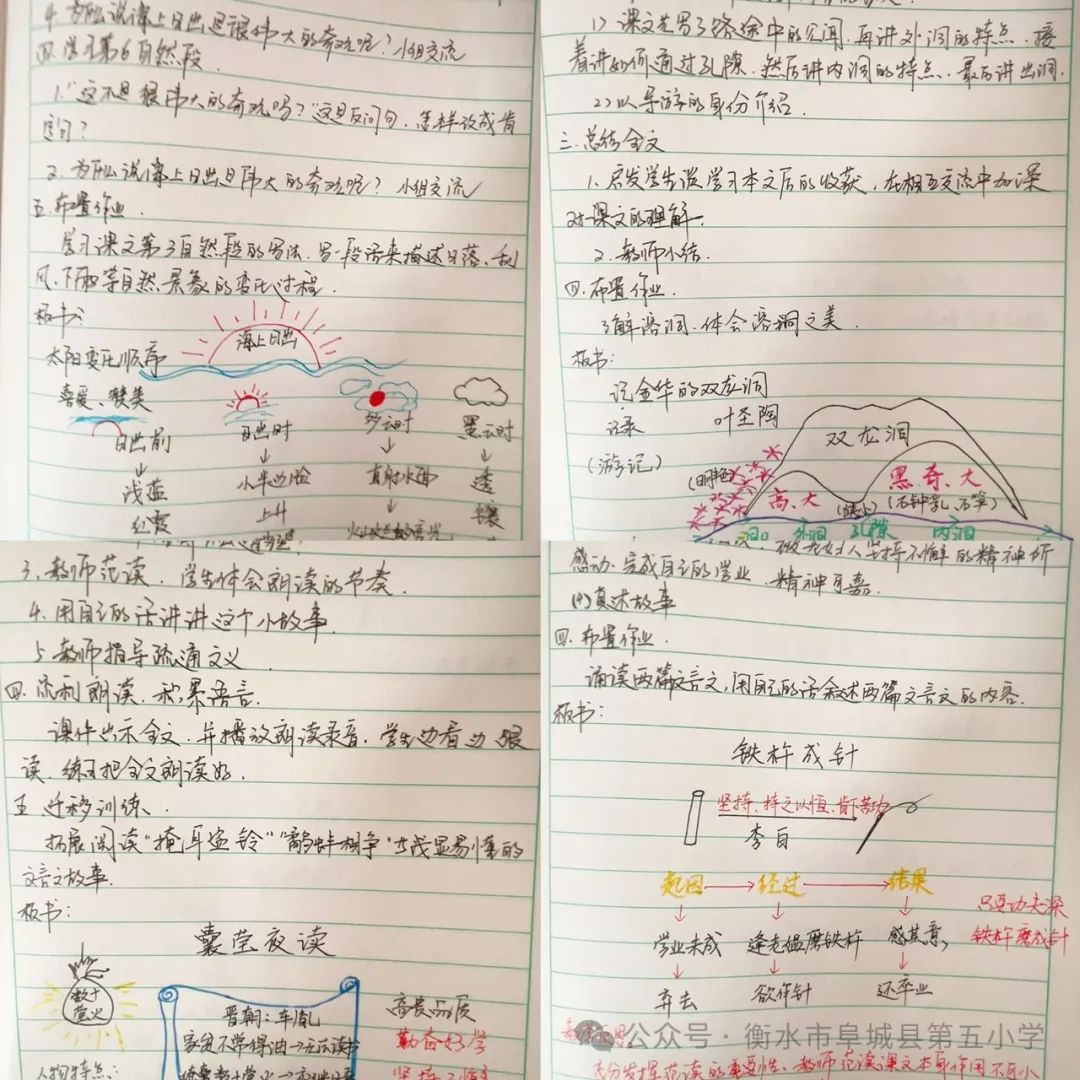 4. 为什么说海上日出是很伟大的奇观呢？小组交流
四. 学习第6自然段.
1. “这不是很伟大的奇观吗？”这是反问句. 怎样改成肯
定句？
2. 为什么说海上日出是伟大的奇观呢？ 小组交流
五. 布置作业.
学习课文第3自然段的写法. 写一段话来描述日落、刮
风、下雨等自然景象的变化过程.
板书:
海上日出
太阳变化顺序
喜爱、赞美
日出前 日出时 多云时 黑云时
↓ ↓ ↓ ↓
浅蓝 小半边脸 直射水面 透
红霞 上升
1) 课文先写了路途中的见闻. 再讲外洞的特点. 接
着讲如何通过孔隙. 然后讲内洞的特点. 最后讲出洞.
2) 以导游的身份介绍.
三. 总结全文
1. 启发学生谈学习本文后的收获, 在相互交流中加深
对课文的理解.
2. 教师小结.
四. 布置作业.
了解溶洞. 体会溶洞之美.
板书:
记金华的双龙洞
记录 叶圣陶
(游记)
双龙洞
(明艳)
高、大
黑、奇、大
(石钟乳、石笋)
洞口 外洞 孔隙 内洞
3. 教师范读. 学生体会朗读的节奏.
4. 用自己的话讲讲这个小故事.
5. 教师指导疏通文义.
四. 流利朗读. 积累语言.
课件出示全文. 并播放朗读录音. 学生边看边跟
读. 练习把全文朗读好.
五. 迁移训练.
拓展阅读“掩耳盗铃”“鹬蚌相争”
文言文故事.
板书:
囊萤夜读
数十
萤火
晋朝: 车胤
家贫不常得油→无法读书
高贵品质
勤奋好学
人物特点:
感动. 完成自己的学业. 精神可嘉.
(4) 复述故事
四. 布置作业.
诵读两篇文言文, 用自己的话叙述两篇文言文的内容.
板书:
铁杵成针
坚持、持之以恒、肯下苦功
李白
起因→经过→结果
↓ ↓ ↓
学业未成 逢老媪磨铁杵 感其意,
↓ ↓ ↓
弃去 欲作针 还卒业
只要功夫深
铁杵磨成针
公众号·衡水市阜城县第五小学